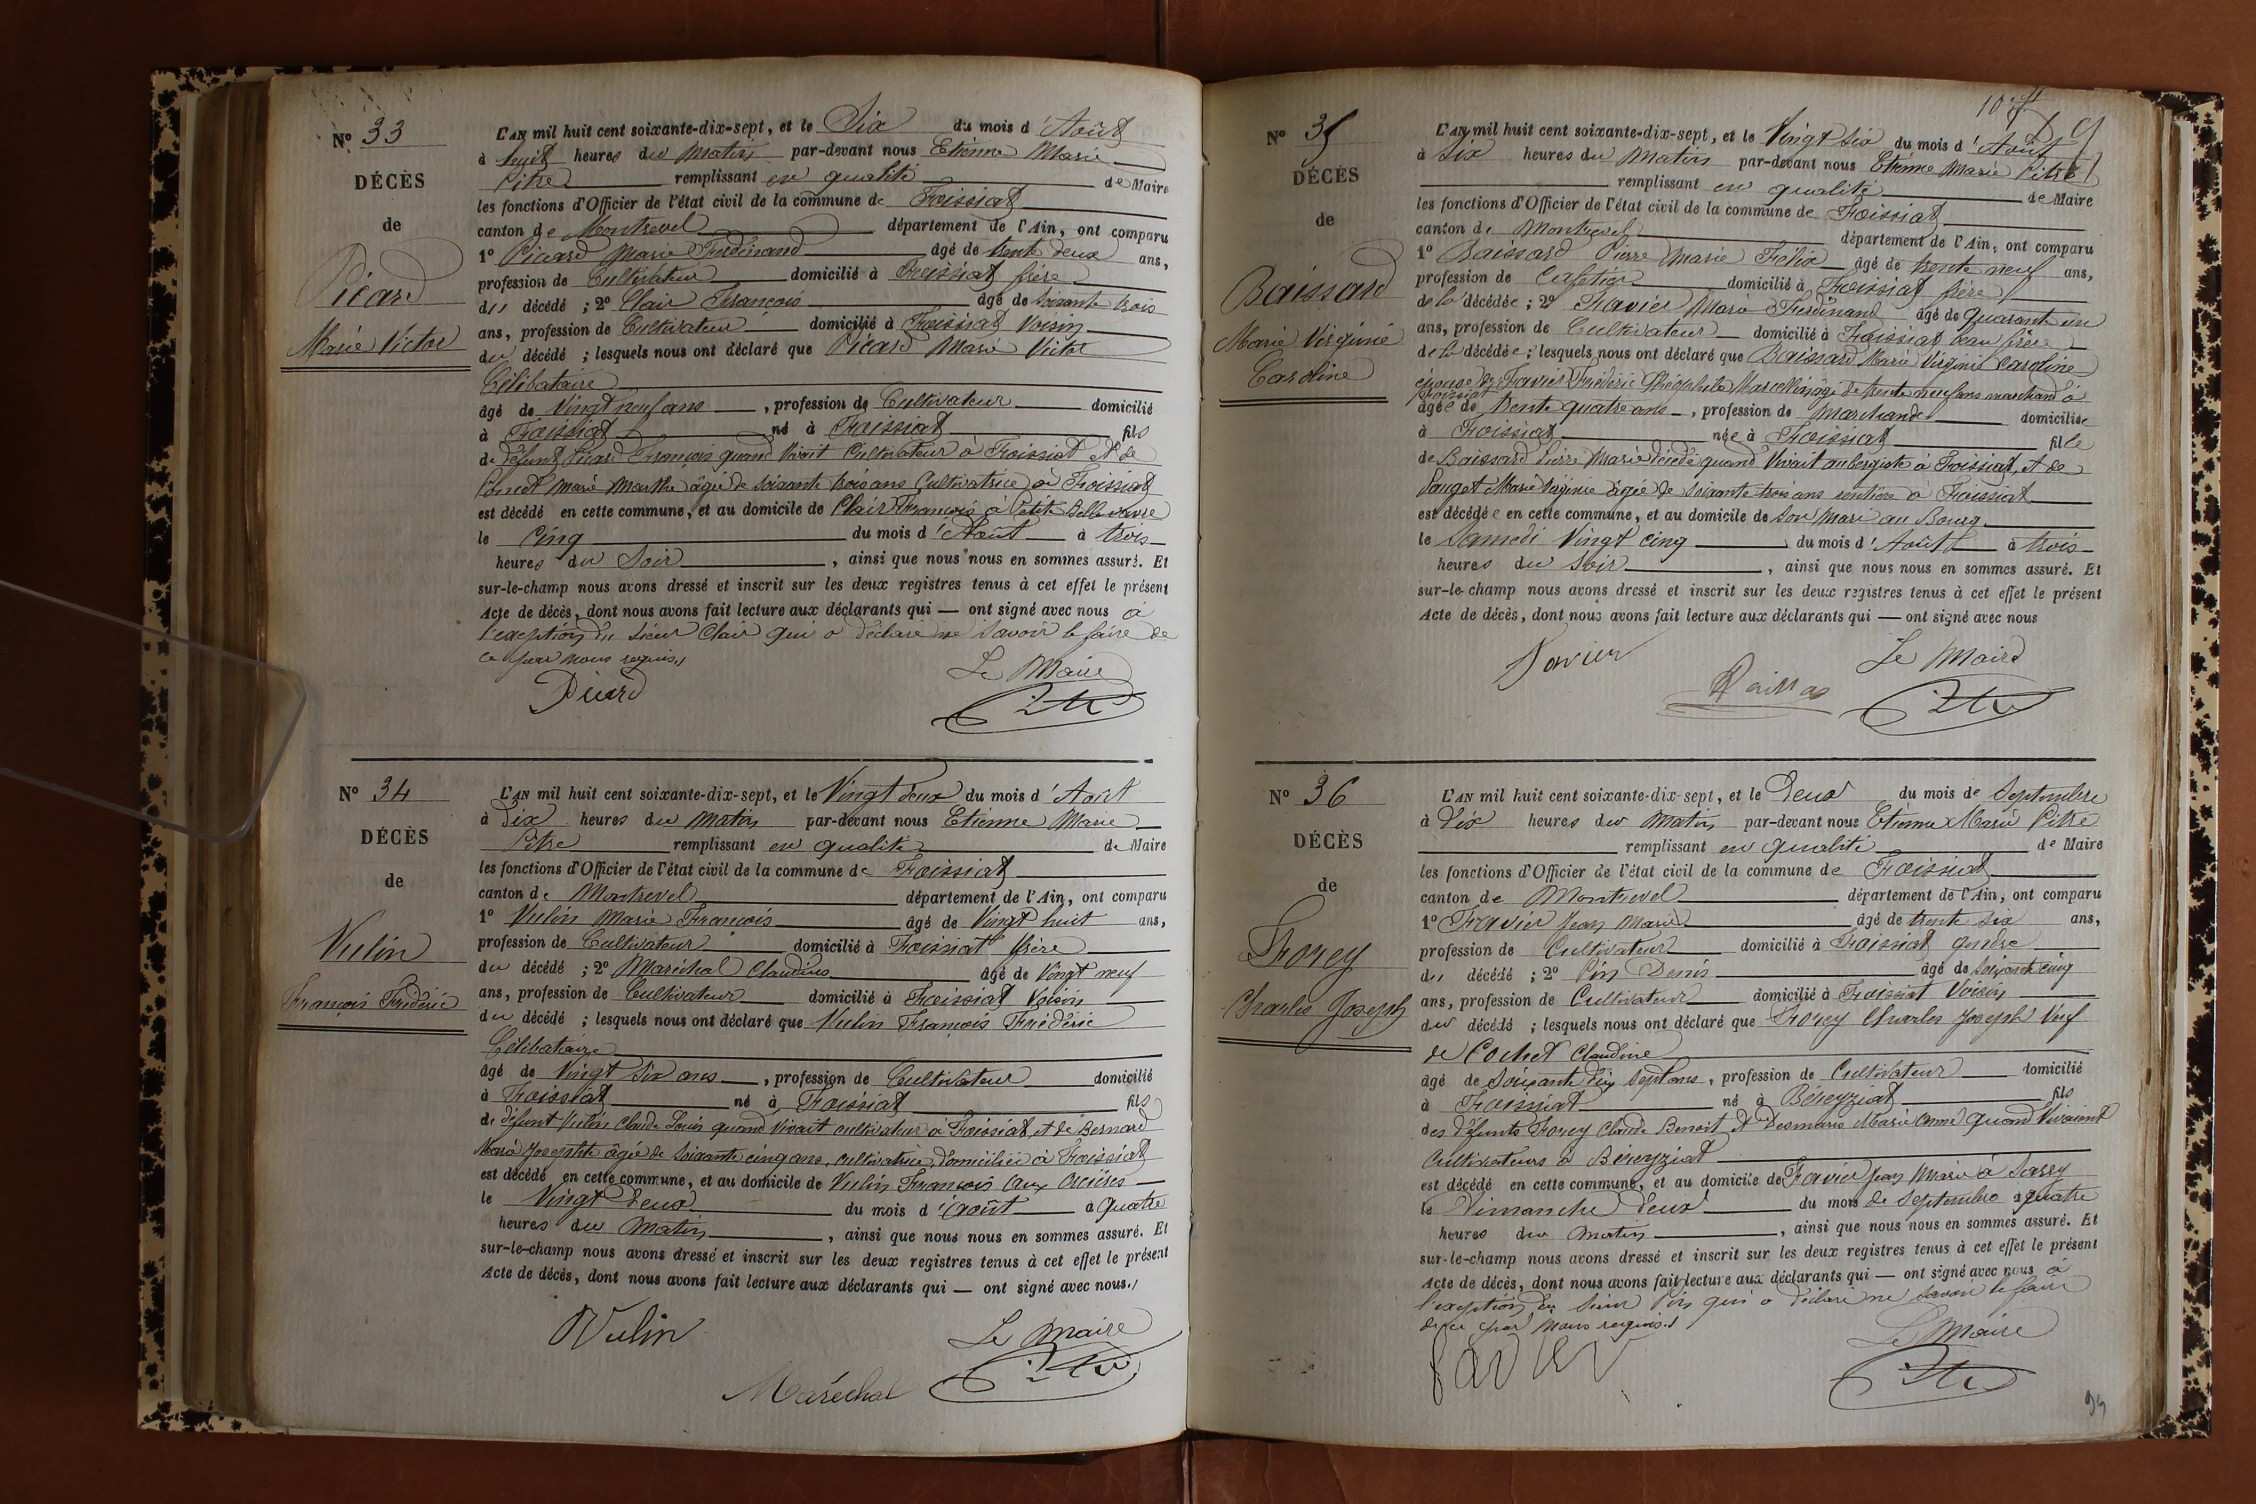 Nº 33
DÉCÈS
de
Picard
Marie Victor
L'AN mil huit cent soixante-dix-sept, et le Six du mois d'Août
à huit heures du Matin par-devant nous Etienne Marie
Pitre remplissant en qualité de Maire
les fonctions d'Officier de l'état civil de la commune de Foissiat
canton de Montrevel département de l'Ain, ont comparu
1º Picard Marie Ferdinand âgé de trente deux ans,
profession de Cultivateur domicilié à Foissiat frère
du décédé ; 2º Clair François âgé de soixante trois
ans, profession de Cultivateur domicilié à Foissiat Voisin
du décédé ; lesquels nous ont déclaré que Picard Marie Victor
Célibataire
âgé de Vingt neuf ans, profession de Cultivateur domicilié
à Foissiat né à Foissiat fils
de défunt Picard François quand Vivait Cultivateur à Foissiat et de
Marie Marthe âgée de soixante trois ans Cultivatrice à Foissiat
est décédé en cette commune, et au domicile de Clair François à Petite
le Cinq du mois d'Août à trois
heures du Soir, ainsi que nous nous en sommes assuré. Et
sur-le-champ nous avons dressé et inscrit sur les deux registres tenus à cet effet le présent
Acte de décès, dont nous avons fait lecture aux déclarants qui — ont signé avec nous à
l'exception du sieur Clair qui a déclaré ne savoir le faire de
ce par nous requis
Picard
Le Maire
Nº 34
DÉCÈS
de
Vulin
François Frédéric
L'AN mil huit cent soixante-dix-sept, et le Vingt deux du mois d'Août
à dix heures du Matin par-devant nous Etienne Marie
Pitre remplissant en qualité de Maire
les fonctions d'Officier de l'état civil de la commune de Foissiat
canton de Montrevel département de l'Ain, ont comparu
1º Vulin Marie François âgé de Vingt huit ans,
profession de Cultivateur domicilié à Foissiat frère
du décédé ; 2º Maréchal Claudius âgé de Vingt neuf
ans, profession de Cultivateur domicilié à Foissiat Voisin
du décédé ; lesquels nous ont déclaré que Vulin François Frédéric
Célibataire
âgé de Vingt Six ans, profession de Cultivateur domicilié
à Foissiat né à Foissiat fils
de défunt Vulin Claude Louis quand Vivait cultivateur à Foissiat et de Bernard
Marie Josephte âgée de soixante cinq ans, cultivatrice, domiciliée à Foissiat
est décédé en cette commune, et au domicile de Vulin François aux
le Vingt deux du mois d'août à quatre
heures du Matin, ainsi que nous nous en sommes assuré. Et
sur-le-champ nous avons dressé et inscrit sur les deux registres tenus à cet effet le présent
Acte de décès, dont nous avons fait lecture aux déclarants qui — ont signé avec nous.
Vulin
Le Maire
Maréchal
Nº 35
DÉCÈS
de
Baissard
Marie Virginie
Caroline
L'AN mil huit cent soixante-dix-sept, et le Vingt Six du mois d'Août
à Six heures du Matin par-devant nous Etienne Marie Pitre
remplissant en qualité de Maire
les fonctions d'Officier de l'état civil de la commune de Foissiat
canton de Montrevel département de l'Ain, ont comparu
1º Baissard Pierre Marie Félix âgé de trente neuf ans,
profession de Cafetier domicilié à Foissiat frère
de la décédée ; 2º Favier Marie Ferdinand âgé de quarante un
ans, profession de Cultivateur domicilié à Foissiat beau frère
de la décédée ; lesquels nous ont déclaré que Baissard Marie Virginie Caroline
épouse de Favier Frédéric Théophile Marcellin âgé de trente neuf ans marchand à
Foissiat
âgée de trente quatre ans, profession de Marchande domiciliée
à Foissiat née à Foissiat fille
de Baissard Pierre Marie décédé quand Vivait aubergiste à Foissiat, et de
Pauget Marie Virginie âgée de soixante trois ans rentière à Foissiat
est décédée en cette commune, et au domicile de son Mari au Bourg
le Samedi Vingt cinq du mois d'Août à trois
heures du soir, ainsi que nous nous en sommes assuré. Et
sur-le-champ nous avons dressé et inscrit sur les deux registres tenus à cet effet le présent
Acte de décès, dont nous avons fait lecture aux déclarants qui — ont signé avec nous
Favier
Le Maire
Nº 36
DÉCÈS
de
Forey
Charles Joseph
L'AN mil huit cent soixante-dix-sept, et le Deux du mois de Septembre
à Dix heures du Matin par-devant nous Etienne Marie Pitre
remplissant en qualité de Maire
les fonctions d'Officier de l'état civil de la commune de Foissiat
canton de Montrevel département de l'Ain, ont comparu
1º Favier Jean Marie âgé de trente six ans,
profession de Cultivateur domicilié à Foissiat gendre
du décédé ; 2º Pin Denis âgé de soixante cinq
ans, profession de Cultivateur domicilié à Foissiat Voisin
du décédé ; lesquels nous ont déclaré que Forey Charles Joseph Veuf
de Cochet Claudine
âgé de Soixante dix sept ans, profession de Cultivateur domicilié
à Foissiat né à Béreyziat fils
des défunts Forey Claude Benoit et Desmaris Marie Anne quand Vivaient
Cultivateurs à Béreyziat
est décédé en cette commune, et au domicile de Favier Jean Marie à
le Dimanche Deux du mois de Septembre à quatre
heures du Matin, ainsi que nous nous en sommes assuré. Et
sur-le-champ nous avons dressé et inscrit sur les deux registres tenus à cet effet le présent
Acte de décès, dont nous avons fait lecture aux déclarants qui — ont signé avec nous à
l'exception du Sieur Pin qui a déclaré ne savoir le faire
de ce par nous requis
favier
Le Maire